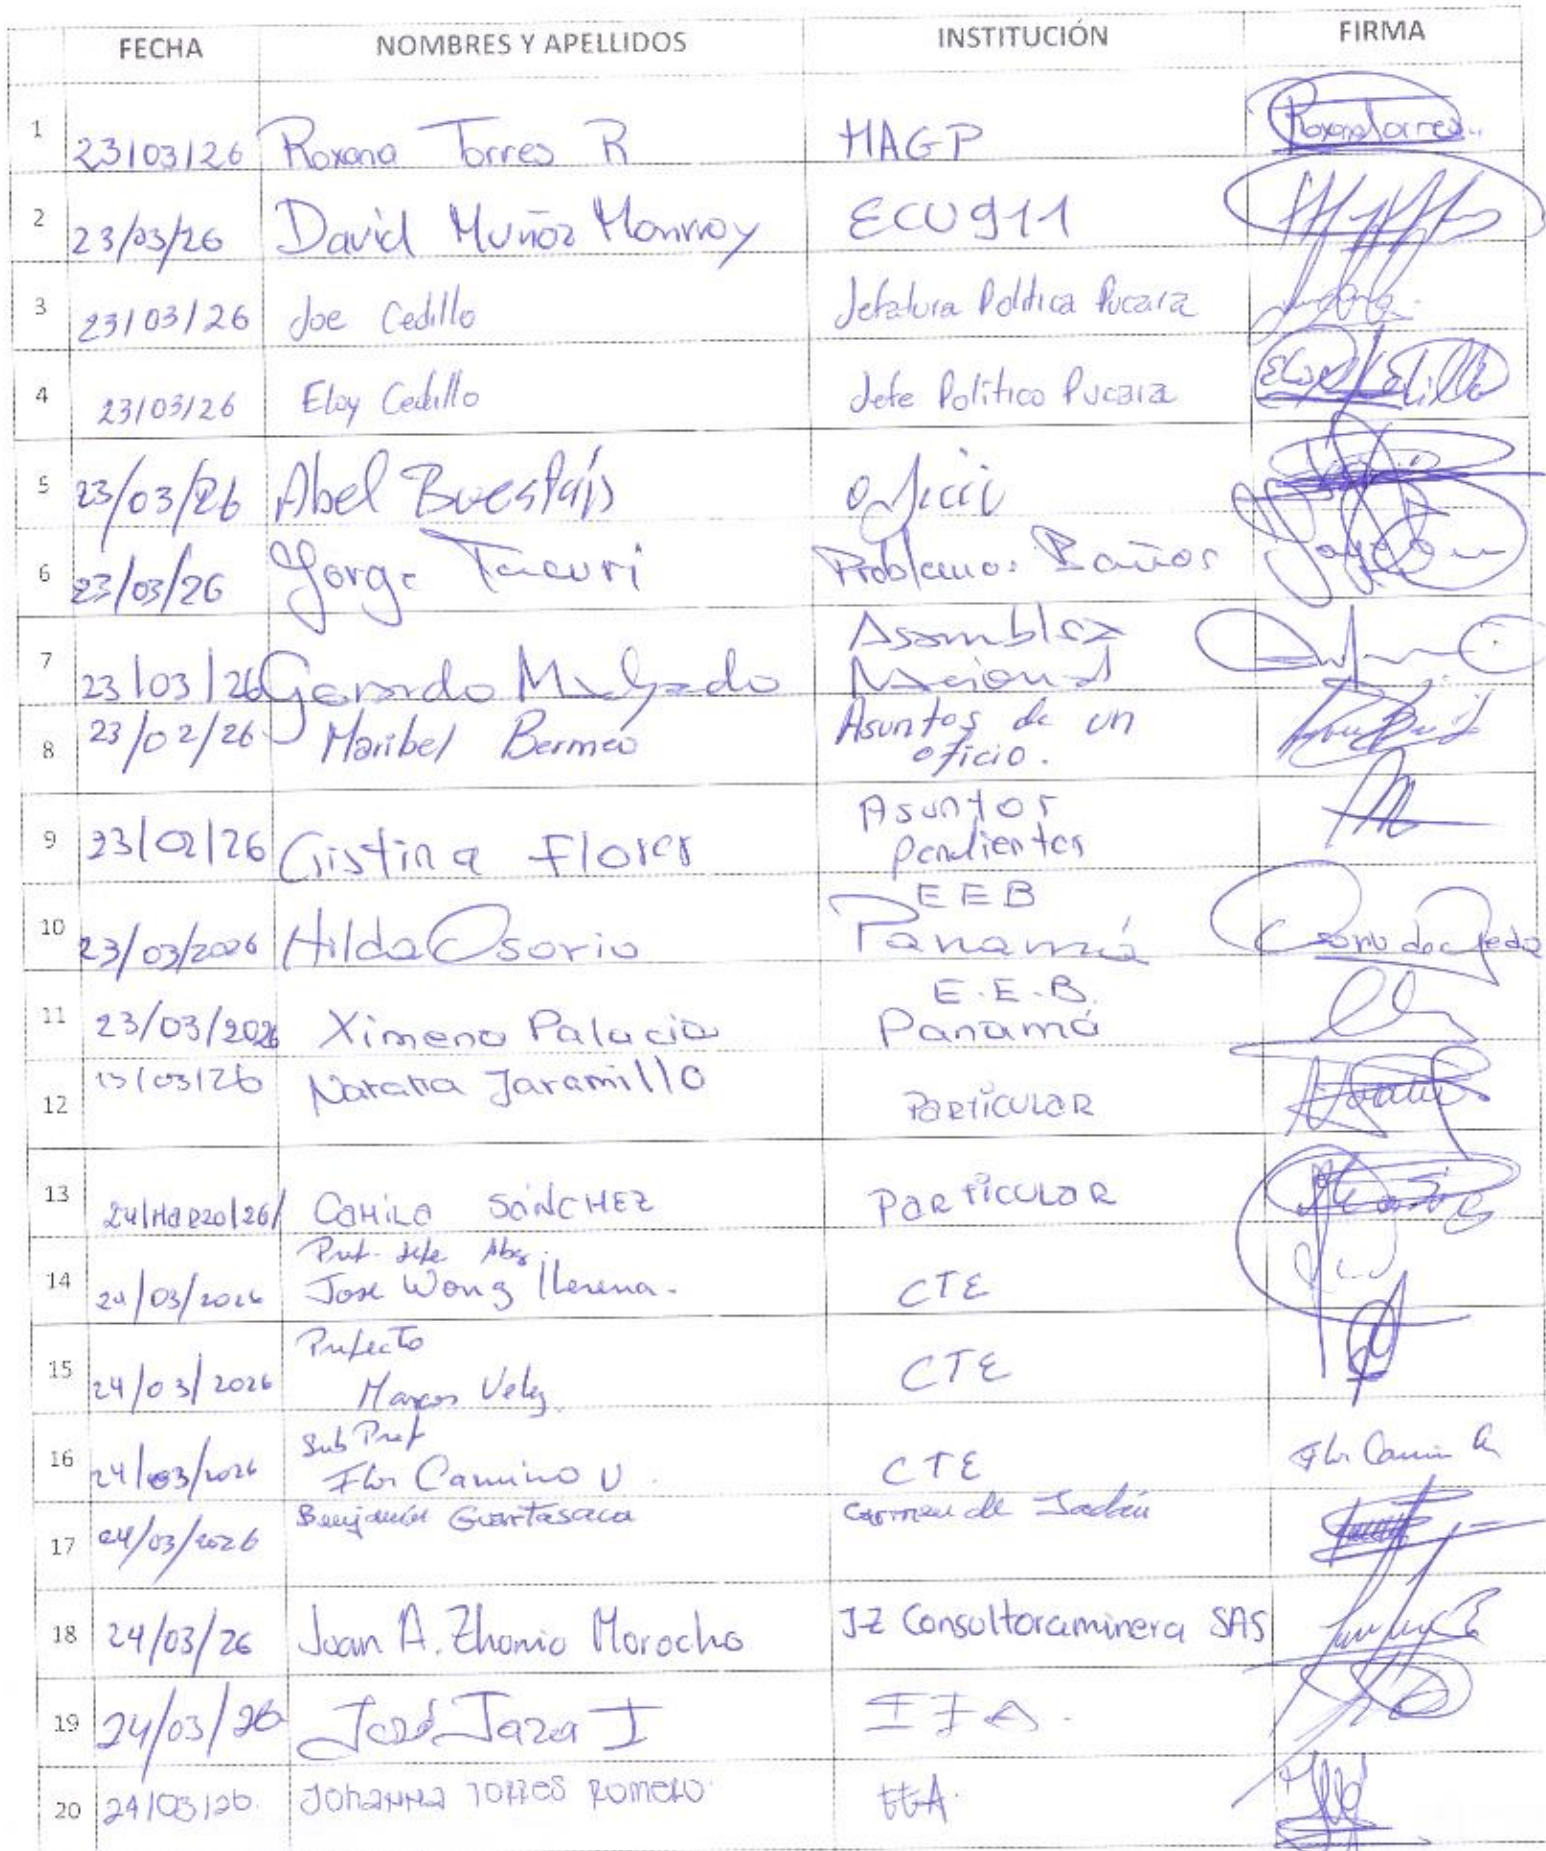 FECHA NOMBRES Y APELLIDOS INSTITUCIÓN FIRMA
1 23/03/26 Roxana Torres R MAGP Roxana Torres
2 23/03/26 David Muñoz Monrroy ECU 911
3 23/03/26 Joe Cedillo Jefatura Política Pucara
4 23/03/26 Eloy Cedillo Jefe Político Pucara Eloy Cedillo
5 23/03/26 Abel
6 23/03/26 Jorge Tacuri Problemas Baños
7 23/03/26 Gerardo Asamblea
Nacional
8 23/02/26 Maribel Bermeo Asuntos de un
oficio.
9 23/02/26 Cristina Flores Asuntos
pendientes
10 23/03/2026 Hilda Osorio EEB
Panamá
11 23/03/2026 Ximena Palacio E.E.B.
Panamá
12 23/03/26 Natalia Jaramillo PARTICULAR
13 24/Marzo/26/ CAMILA SÁNCHEZ PARTICULAR
14 24/03/2026 Pref. Jefe Abg.
Jose Wong Llerena. CTE
15 24/03/2026 Prefecto
Marcos Velez CTE
16 24/03/2026 Sub Pref
Flor Camino U. CTE Flor Camin
17 24/03/2026 Benjamín Guartasaca Carmen de Jadán
18 24/03/26 Juan A. Zhonio Morocho JZ Consultoraminera SAS
19 24/03/26 José
20 24/03/26. Johanna Torres Romero.